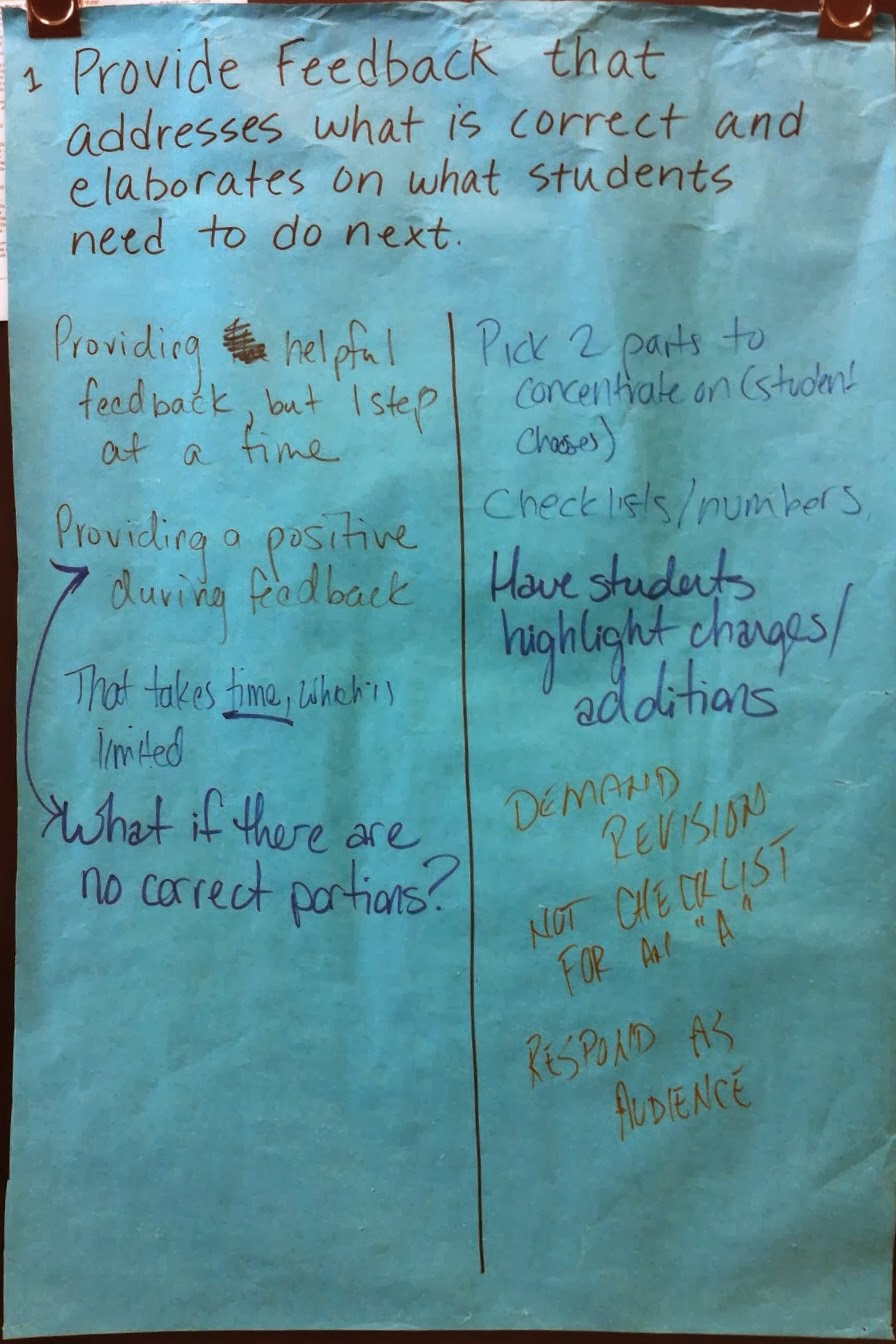 1 Provide Feedback that
addresses what is correct and
elaborates on what students
need to do next.
Providing helpful
feedback, but 1 step
at a time
Providing a positive
during feedback
That takes time, which is
limited
What if there are
no correct portions?
Pick 2 parts to
concentrate on (student
chooses)
Checklists/numbers
Have students
highlight changes/
additions
DEMAND
REVISION
NOT CHECKLIST
FOR AN "A"
RESPOND AS
AUDIENCE